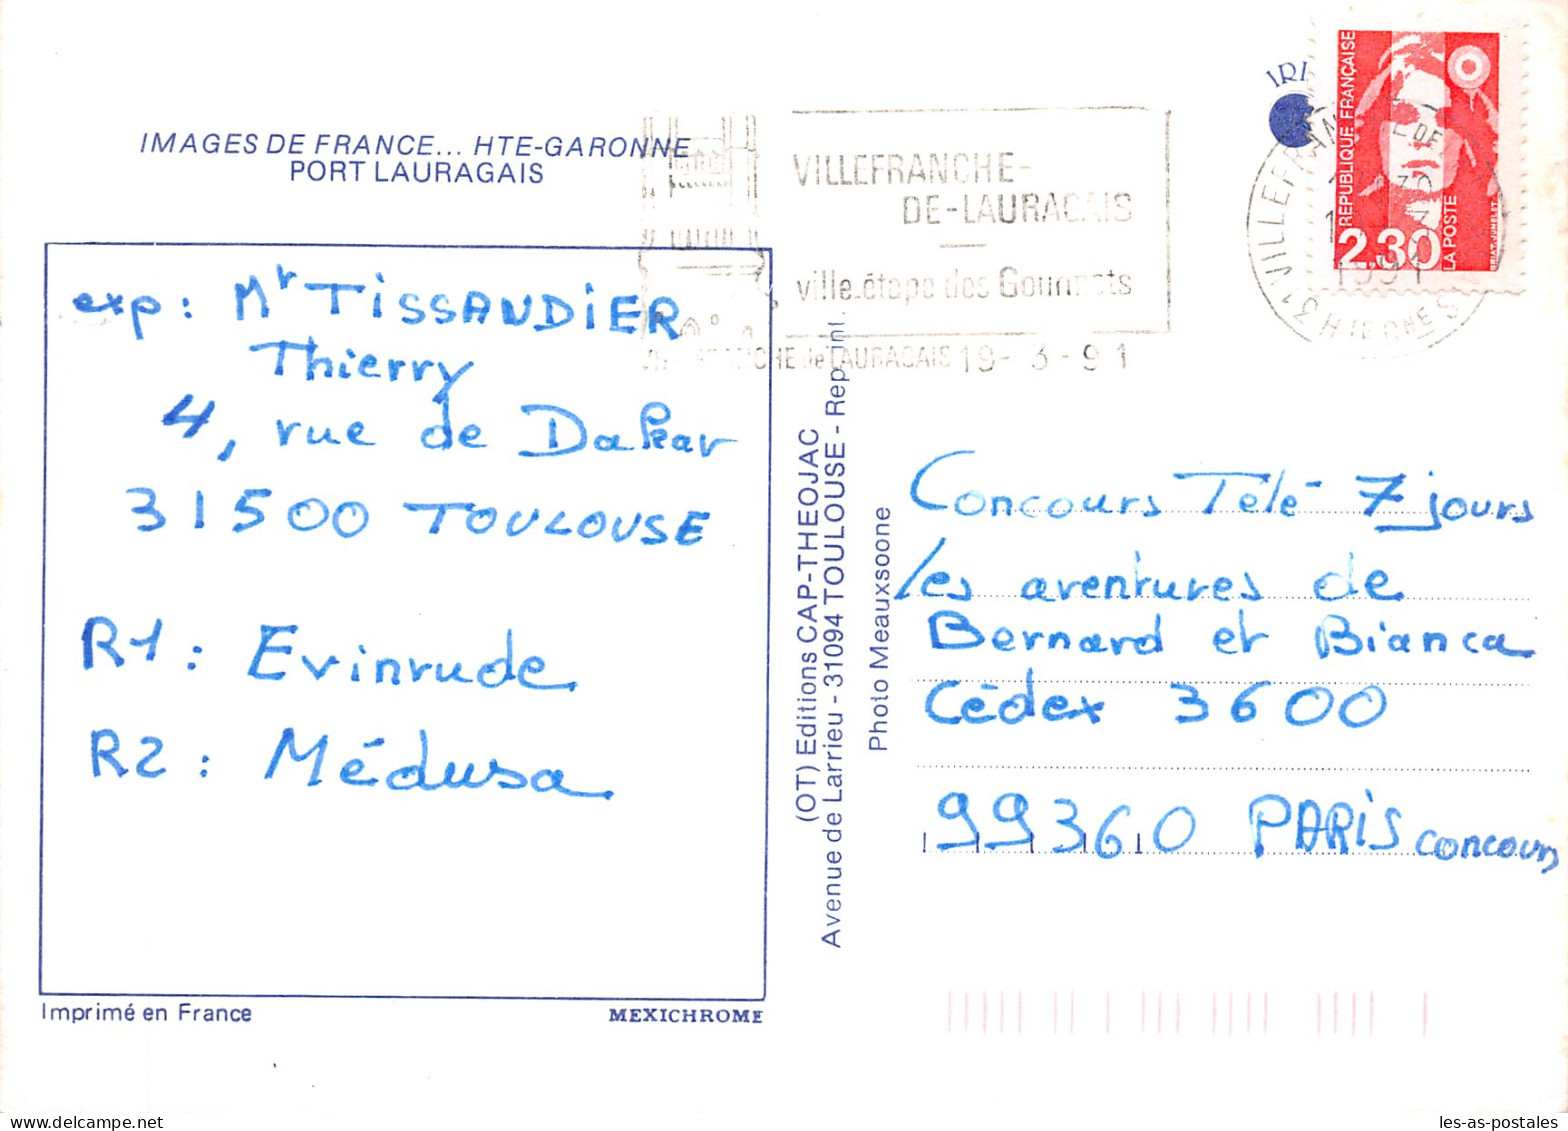 IMAGES DE FRANCE... HTE-GARONNE
PORT LAURAGAIS
exp: Mr TISSANDIER
Thierry
4, rue de Dakar
31500 TOULOUSE
R1: Evinrude
R2: Médusa
Imprimé en France
MEXICHROME
VILLEFRANCHE-
DE-LAURAGAIS
ville étape des Gourmets
DE LAURAGAIS 19-3-91
(OT) Editions CAP-THEOJAC
Avenue de Larrieu - 31094 TOULOUSE - Rep. int.
Photo Meauxsoone
IRI
REPUBLIQUE FRANÇAISE
2,30
LA POSTE
1991
Concours Télé 7 jours
les aventures de
Bernard et Bianca
Cédex 3600
99360 PARIS concours
les-as-postales